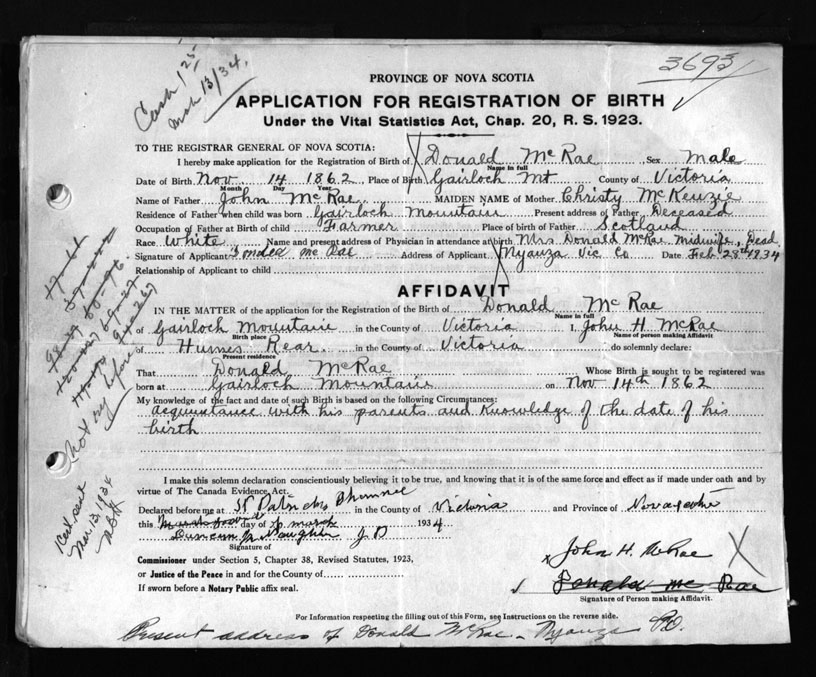 3693
Cash 1.25
Mch 13/34
PROVINCE OF NOVA SCOTIA
APPLICATION FOR REGISTRATION OF BIRTH
Under the Vital Statistics Act, Chap. 20, R. S. 1923.
TO THE REGISTRAR GENERAL OF NOVA SCOTIA:
I hereby make application for the Registration of Birth of Donald McRae Sex Male
Name in full
Date of Birth Nov 14 1862 Place of Birth Gairloch Mt County of Victoria
Month Day Year
Name of Father John McRae MAIDEN NAME of Mother Christy McKenzie
Residence of Father when child was born Gairloch Mountain Present address of Father Deceased
Occupation of Father at Birth of child Farmer Place of birth of Father Scotland
Race White Name and present address of Physician in attendance at birth Mrs. Donald McRae Midwife, Dead
Signature of Applicant Mc Rae Address of Applicant Nyanza Vic Co Date Feb 28th 1934
Relationship of Applicant to child
AFFIDAVIT
IN THE MATTER of the application for the Registration of the Birth of Donald McRae
Name in full
of Gairloch Mountain in the County of Victoria I, John H. McRae
Birth place Name of person making Affidavit
of Humes Rear in the County of Victoria do solemnly declare:
Present residence
That Donald McRae Whose Birth is sought to be registered was
born at Gairloch Mountain on Nov 14th 1862
My knowledge of the fact and date of such Birth is based on the following Circumstances:
acquintance with his parents and knowledge of the date of his
birth
I make this solemn declaration conscientiously believing it to be true, and knowing that it is of the same force and effect as if made under oath and by
virtue of The Canada Evidence Act.
Declared before me at St Patricks Channel in the County of Victoria and Province of Nova Scotia
this day of march 1934
Duncan J P
Signature of
Commissioner under Section 5, Chapter 38, Revised Statutes, 1923,
or Justice of the Peace in and for the County of
If sworn before a Notary Public affix seal.
x John H. McRae X
Donald Mc Rae
Signature of Person making Affidavit.
For Information respecting the filling out of this Form, see Instructions on the reverse side.
Present address of Donald McRae - Nyanza P.O.
Not reg before
Cert. sent
Mar. 13, 1934